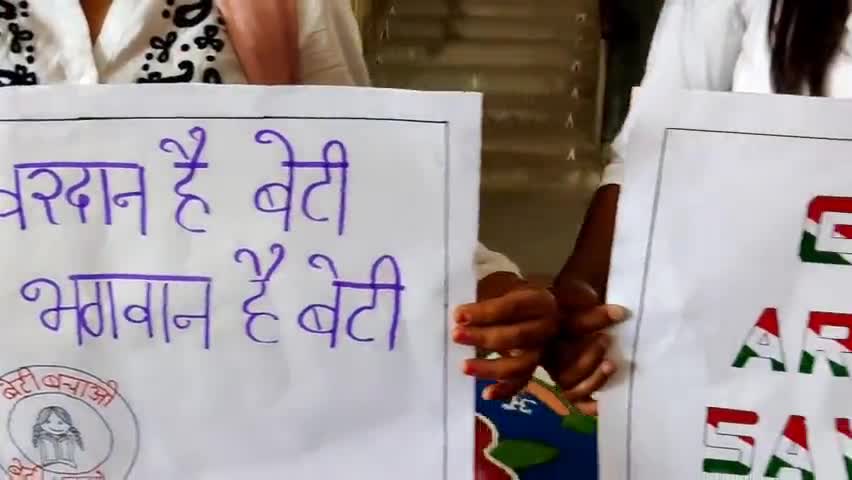 वरदान है बेटी
भगवान है बेटी
बेटी बचाओ
G
AR
SAV